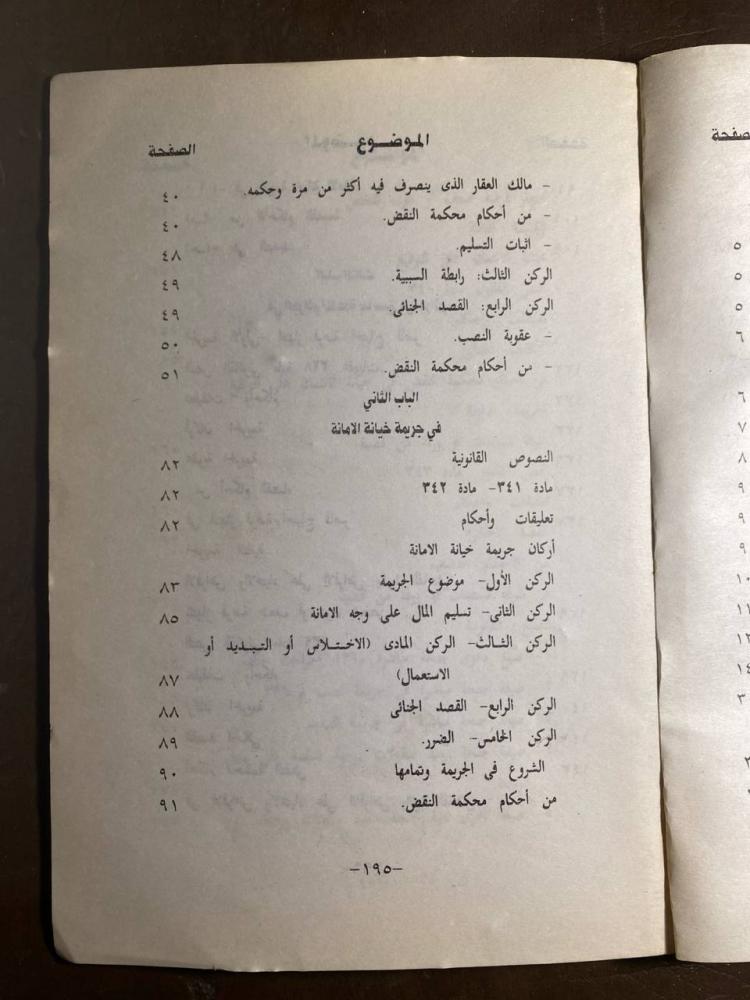 الموضوع الصفحة
- مالك العقار الذى يتصرف فيه أكثر من مرة وحكمه. ٤٠
- من أحكام محكمة النقض. ٤٠
- اثبات التسليم. ٤٨
الركن الثالث: رابطة السببية. ٤٩
الركن الرابع: القصد الجنائى. ٤٩
- عقوبة النصب. ٥٠
- من أحكام محكمة النقض. ٥١
الباب الثاني
في جريمة خيانة الامانة
النصوص القانونية ٨٢
مادة ٣٤١- مادة ٣٤٢ ٨٢
تعليقات وأحكام ٨٢
أركان جريمة خيانة الامانة
الركن الأول- موضوع الجريمة ٨٣
الركن الثانى- تسليم المال على وجه الامانة ٨٥
الركن الثالث- الركن المادى (الاختلاس أو التبديد أو
الاستعمال) ٨٧
الركن الرابع- القصد الجنائى ٨٨
الركن الخامس- الضرر. ٨٩
الشروع فى الجريمة وتمامها ٩٠
من أحكام محكمة النقض. ٩١
-١٩٥-
٥
٥
٥
٦
٦
٧
٨
٩
٩
٩
١٠
١١
١٢
١٤